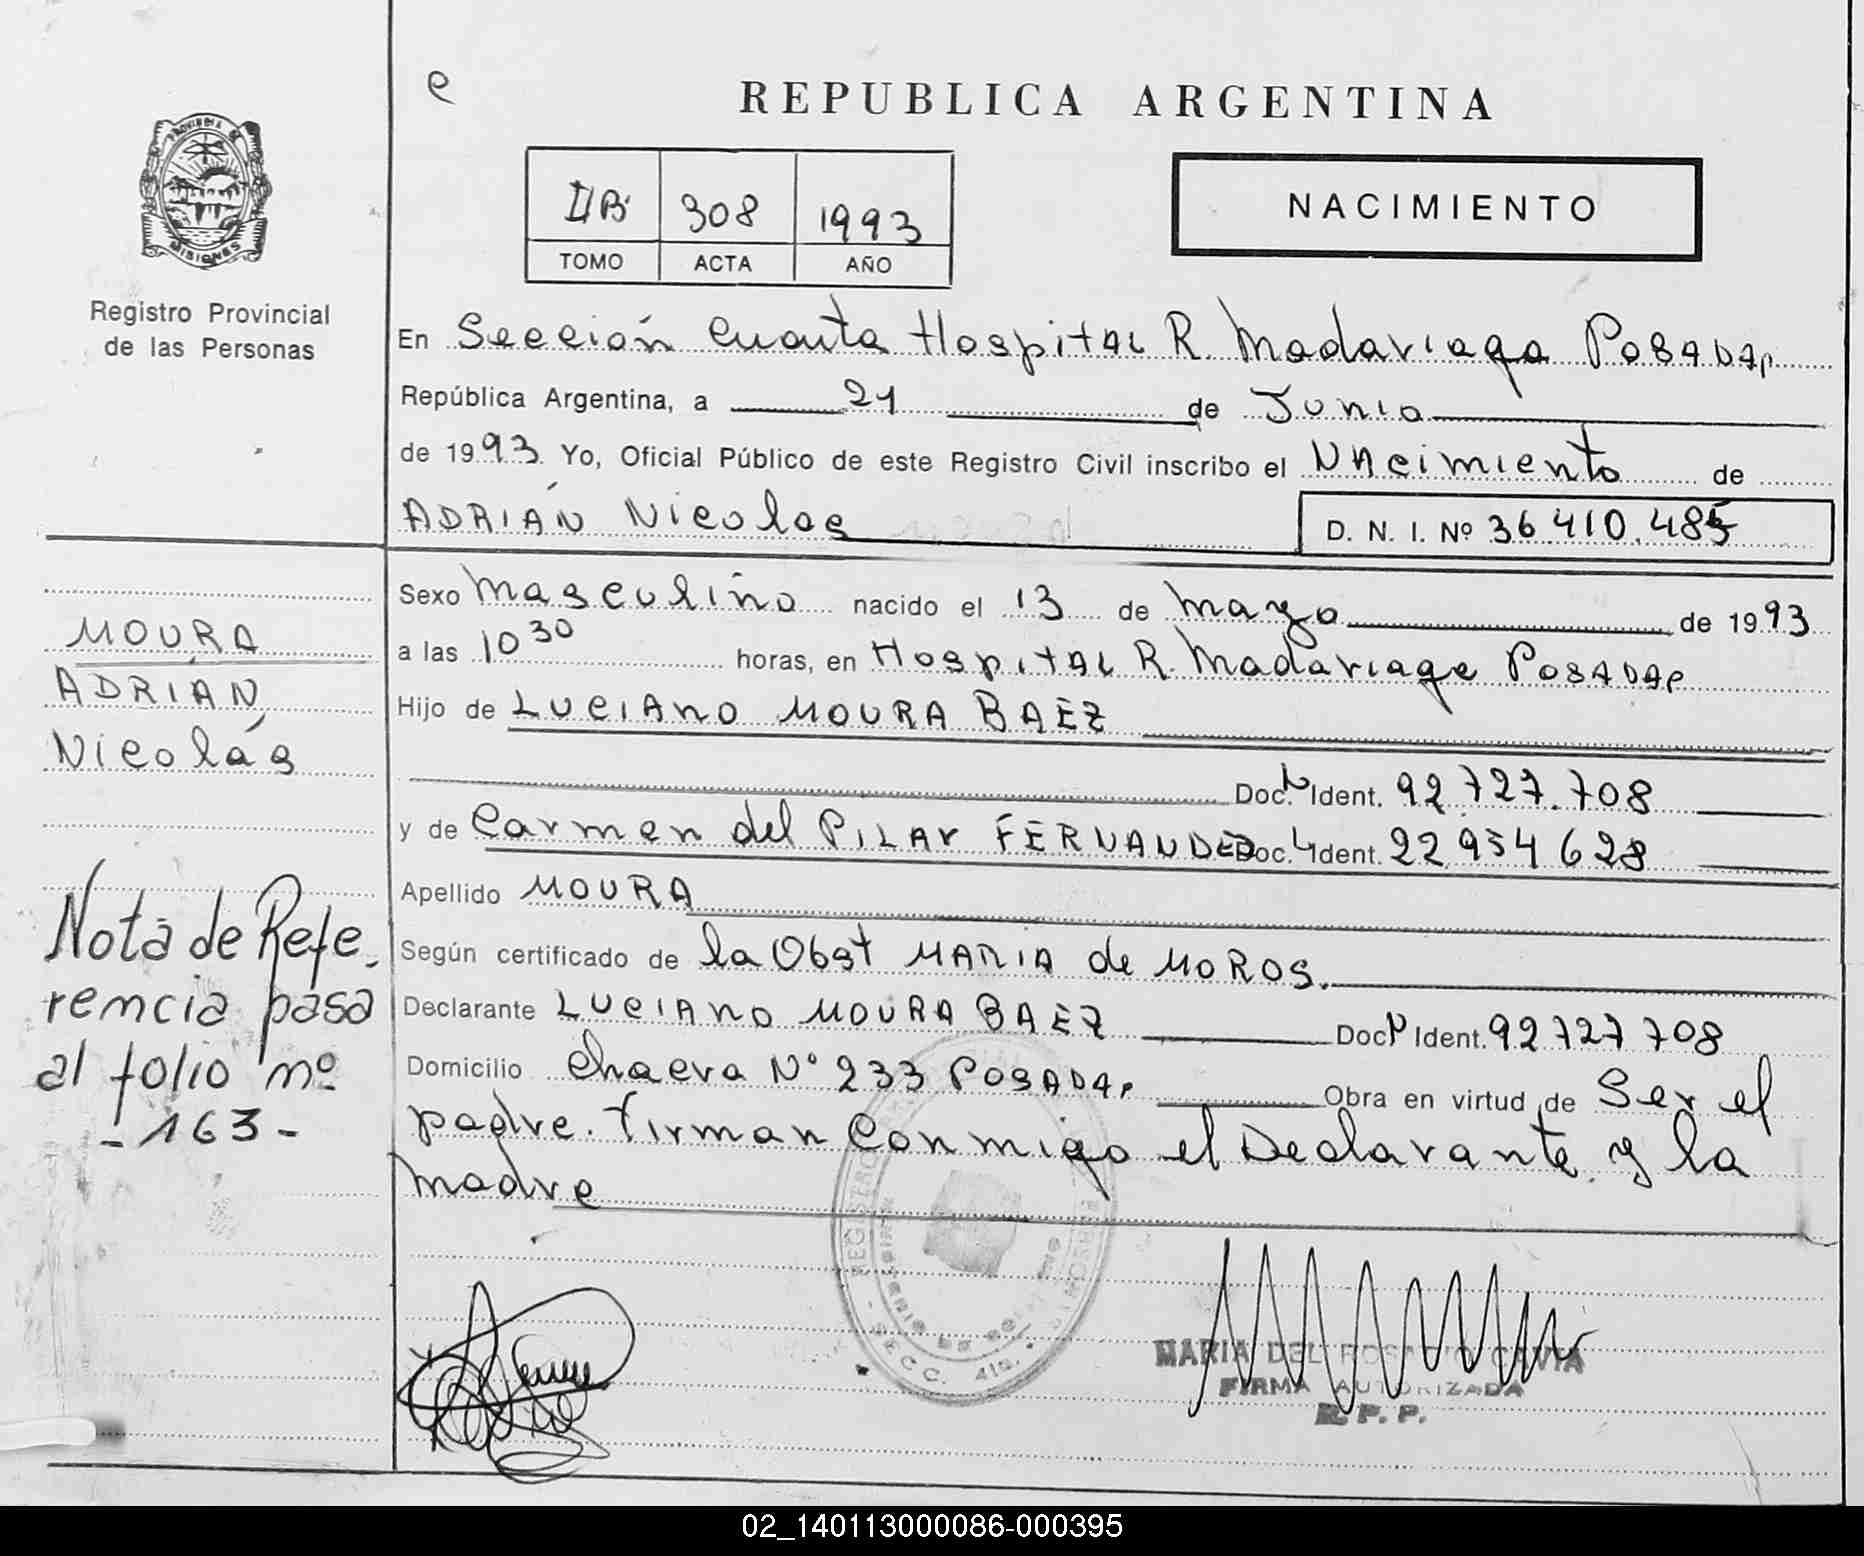 e
REPUBLICA ARGENTINA
PROVINCIA DE
MISIONES
IIB 308 1993
TOMO ACTA AÑO
NACIMIENTO
Registro Provincial
de las Personas
En Sección Cuarta Hospital R. Madariaga Posadas
República Argentina, a 21 de Junio
de 1993 Yo, Oficial Público de este Registro Civil inscribo el Nacimiento de
ADRIÁN Nicolás
D. N. I. Nº 36.410.485
Sexo Masculino nacido el 13 de Mayo de 1993
a las 10 30 horas, en Hospital R. Madariaga Posadas
Hijo de Luciano MOURA BAEZ
Doc. N Ident. 92.727.708
y de Carmen del Pilar FERNANDEZ Doc. N Ident. 22 954 628
Apellido MOURA
Según certificado de la Obst MARIA de MOROS.
Declarante Luciano MOURA BAEZ Doc N Ident. 92 727 708
Domicilio Nº 233 Posadas Obra en virtud de Ser el
padre. Firman Conmigo el Declarante y la
madre
MOURA
ADRIÁN
Nicolás
Nota de Refe-
rencia pasa
al folio nº
- 163 -
REGISTRO
SECC. 4ta.
MARIA DEL ROSARIO CAVIA
FIRMA AUTORIZADA
R. P. P.
02_140113000086-000395